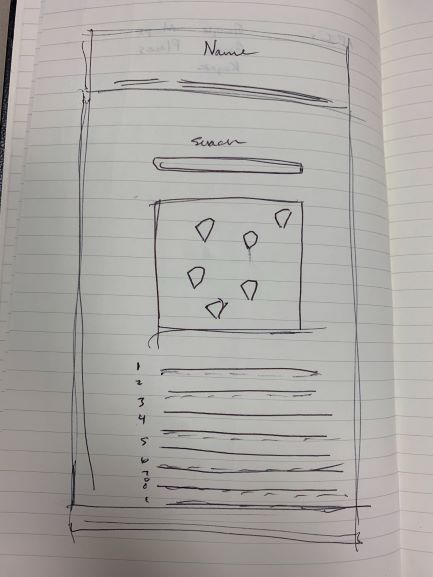 Name
Search
1
2
3
4
5
6
7
8